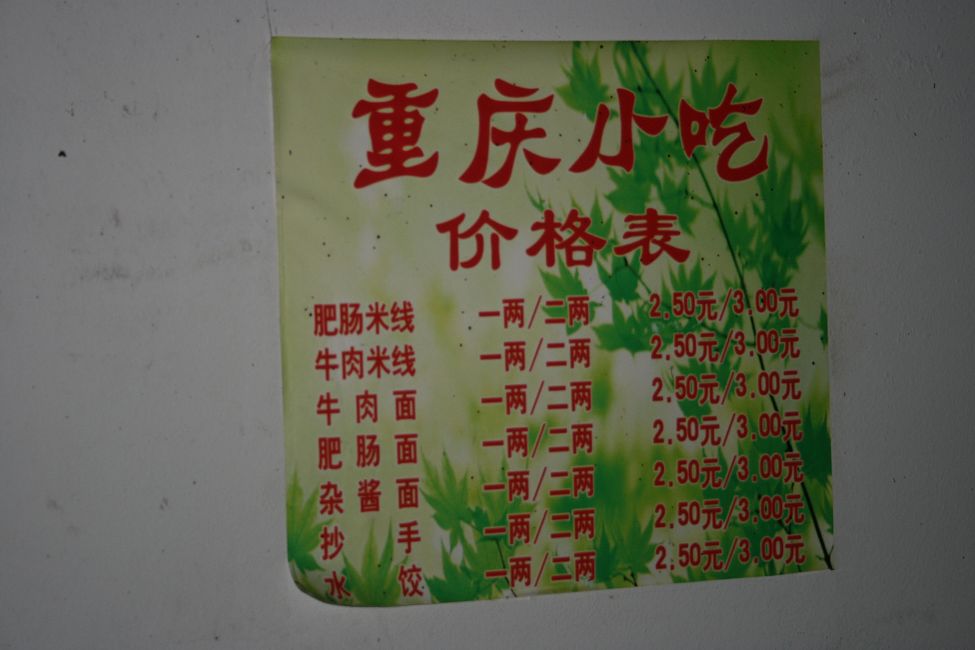 重庆小吃
价格表
肥肠米线 一两/二两 2.50元/3.00元
牛肉米线 一两/二两 2.50元/3.00元
牛肉面 一两/二两 2.50元/3.00元
肥肠面 一两/二两 2.50元/3.00元
杂酱面 一两/二两 2.50元/3.00元
抄手 一两/二两 2.50元/3.00元
水饺 一两/二两 2.50元/3.00元